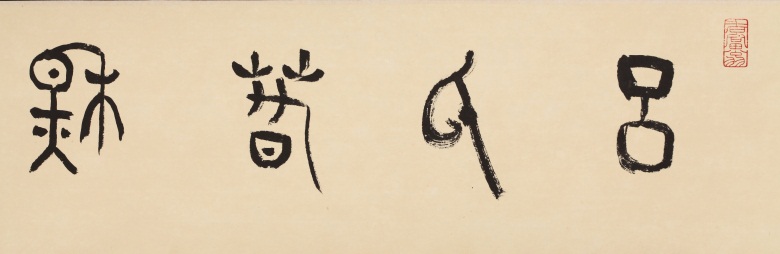 呂氏春秋